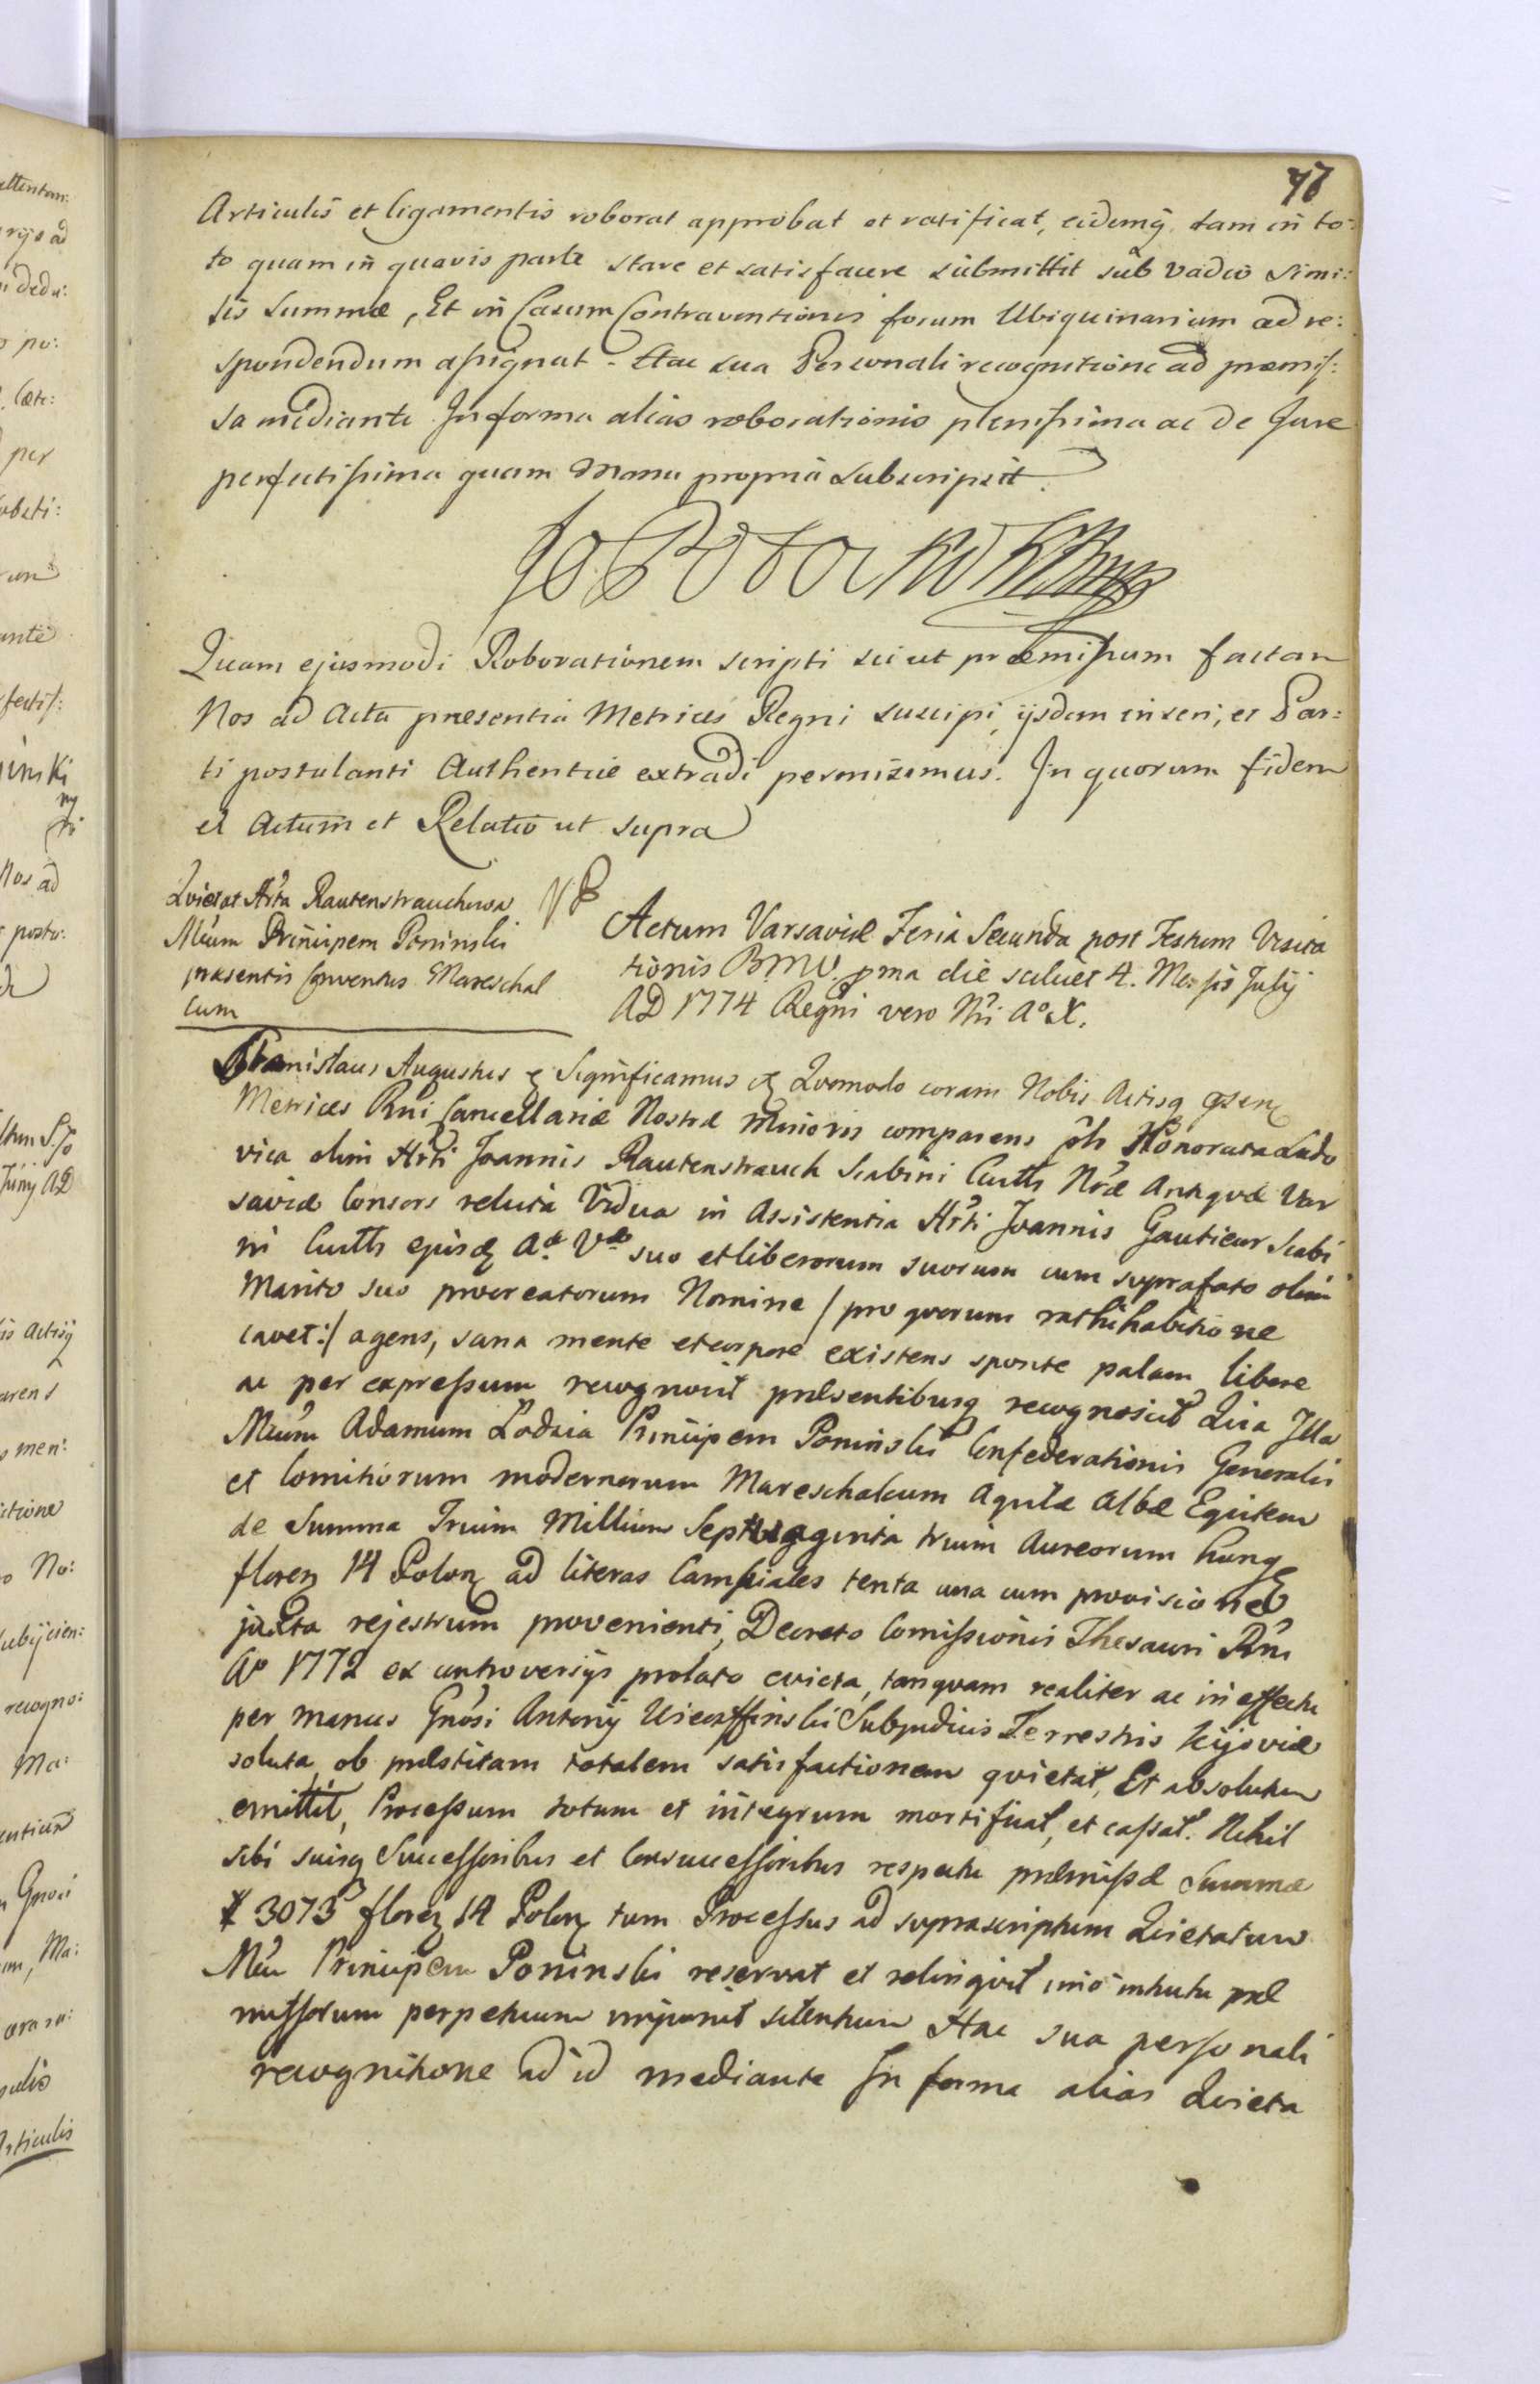 78
Articulis et ligamentis roborat approbat et ratificat, eidemq̃ tam in to:
to quam in quavis parte stare et satisfacere submittit sub vadio simi:
lis summæ, Et in Casum Contraventionis forum Ubiquinarium ad re:
spondendum assignat. Hac sua Personali recognitione ad præmis:
sa mediante In forma alias roborationis plenissima ac de Jure
perfectissima quam Manu propria subscripsit.
Quam ejusmodi Roborationem scripti sicut præmissum factam
Nos ad Acta præsentia Metrices Regni suscipi, ijsdem inseri, et Par:
ti postulanti Authentice extradi permisimus. In quorum fidem
et Actum et Relatio ut supra
Quietat Hrta Rautenstrauchowa
Mcum Principem Poninski
præsentis Conventus Mareschal
cum
Actum Varsaviæ Feria Secunda post Festum Visita
tionis BMV. pma die scilicet 4. Mensis Julij
AD 1774 Regni vero Nri A° X.
Stanislaus Augustus Significamus Quomodo coram Nobis Actisq
Metrices Rni Cancellariæ Nostræ Minoris comparens Honorata Ludo
vica olim Hrti Joannis Rautenstrauch Scabini Cuttis Nræ Antiquæ Var
saviæ Consors relicta Vidua in Assistentia Hrti Joannis Gautieur Scabi
ni Cuttis ejusd A. V. suo et liberorum suorum cum suprafato olim
Marito suo procreatorum Nomine / pro quorum rathihabitione
cavet:/ agens, sana mente et corpore existens sponte palam libere
ac per expressum recognovit præsentibusq recognoscit Quia Illa
Mcum Adamum Łodzia Principem Poninski Confederationis Generalis
et Comitiorum modernorum Mareschalcum Aquilæ Albæ Equitem
de Summa Trium Millium Septuaginta trium Aureorum hung
floren 14 Polon ad literas Cambiales tenta una cum provisione
juxta rejestrum provenienti, Decreto Comissionis Thesauri Rni
A° 1772 ex controversijs prolato evicta, tanquam realiter ac in effectu
per manus Gnosi Antonij Subjudicis Terrestris Kijoviæ
soluta, ob præstitam totalem satisfactionem quietat, Et absolutum
emittit, Processum totum et integrum mortificat, et cassat. Nihil
sibi suisq Successoribus et Consuccessoribus respectu præmissæ Summæ
# 3073 floren 14 Polon tum Processus ad suprascriptum Quietatum
Mcum Principem Poninski reservat et relinquit imo intuitu præ
missorum perpetuum imponit silentium Hac sua personali
recognitione ad id mediante In forma alias Quieta